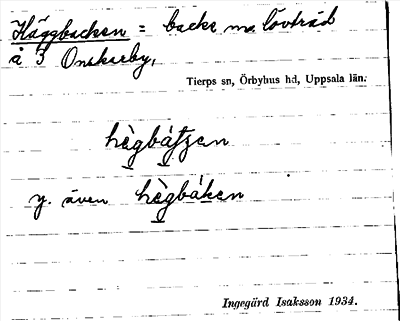 Häggbacken = backe m. lövträd
å 3 Onskarby,
Tierps sn, Örbyhus hd, Uppsala län.
hègbátzen
y. även hègbáken
Ingegärd Isaksson 1934.